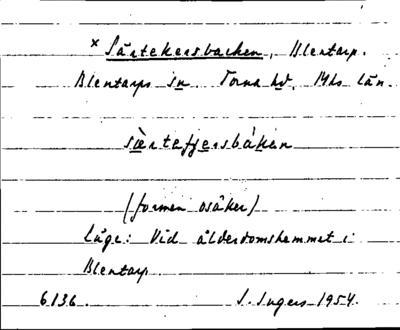 × Särtekersbacken, Blentarp.
Blentarps sn. Torna hd, Mhs län.
sæ̀rtefjersbákan
(formen osäker)
Läge: Vid ålderdomshemmet i
Blentarp.
6136. S. Ingers 1954.